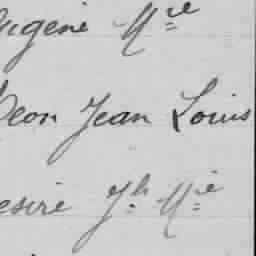 ugène M^ie
Leon Jean Louis
esiré J^h M^ie